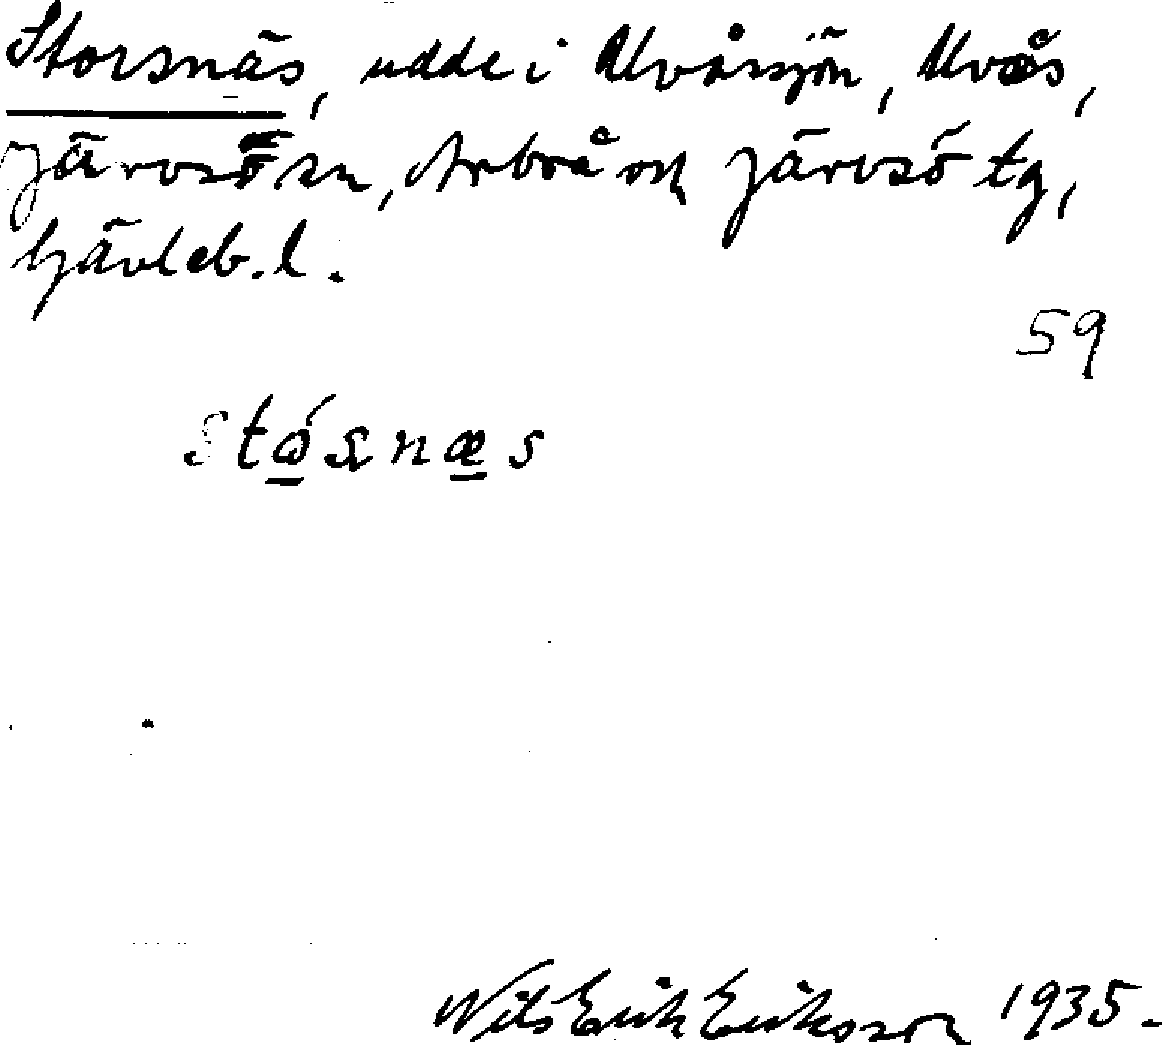 Storsnäs, udde i Ulvåssjön, Ulvås,
Järvsö sn, Arbrå och Järvsö tg,
Gävleb. l.
59
stǻsnæs
Nils Erik Eriksson 1935.